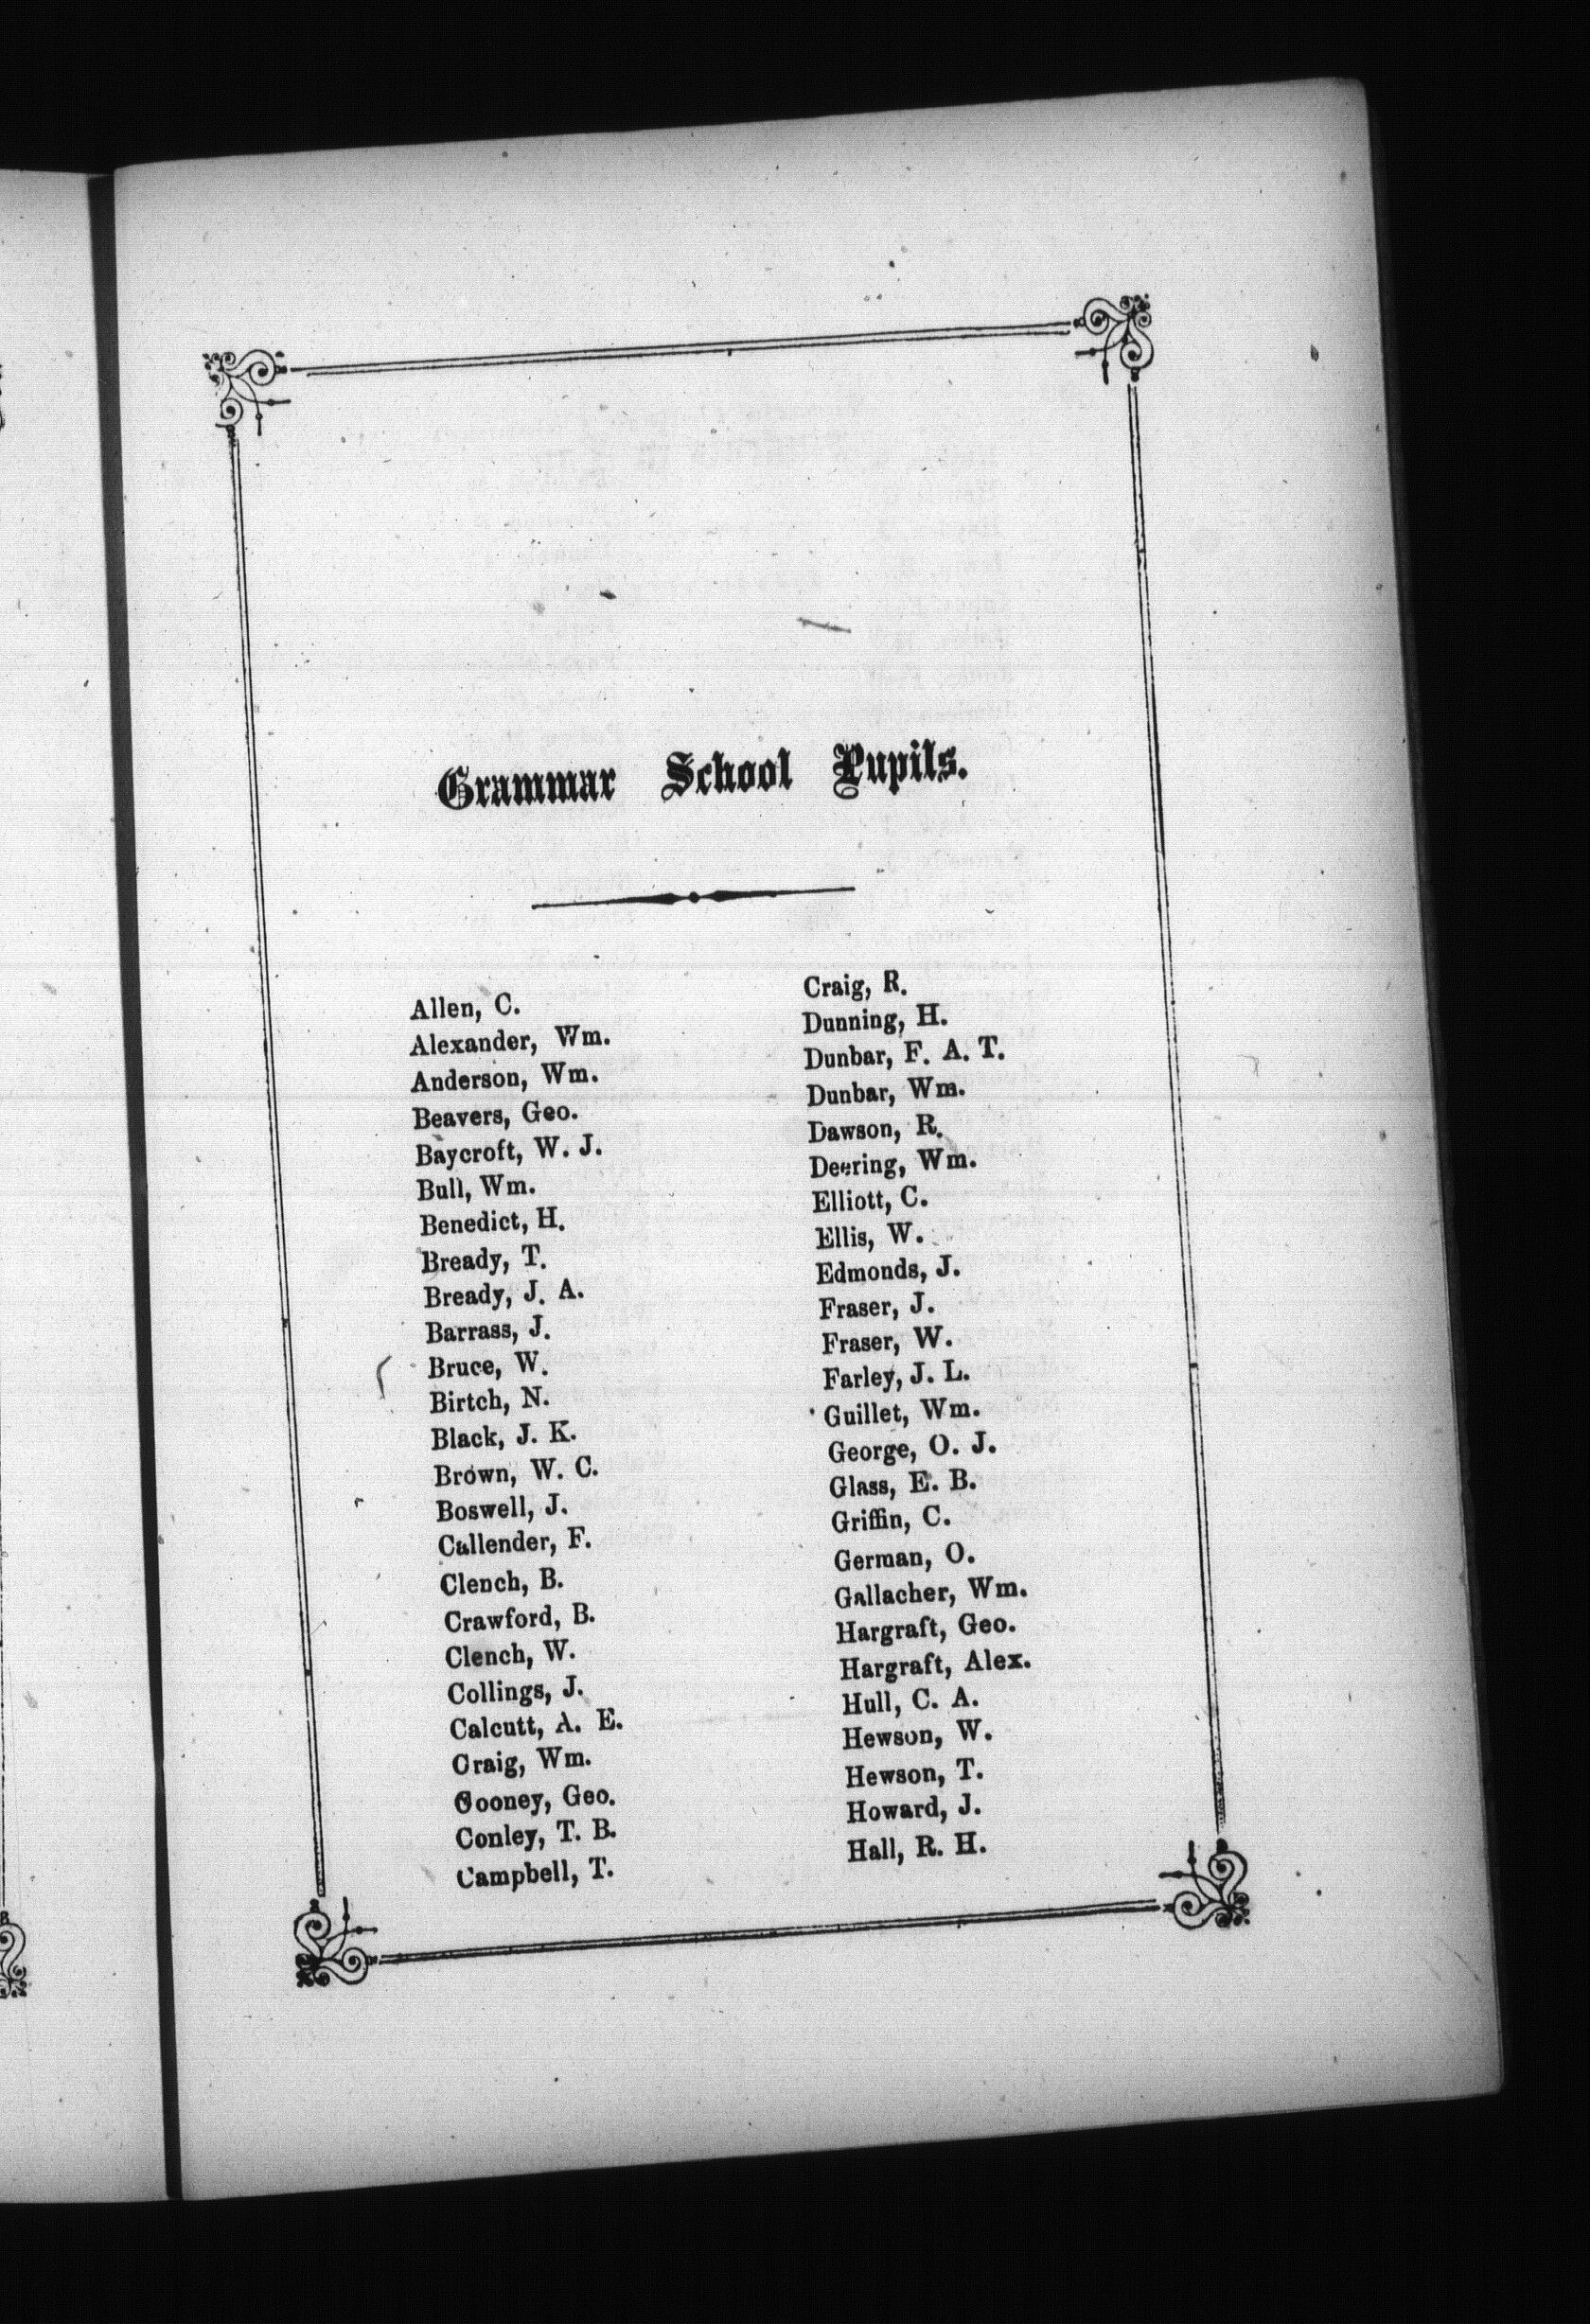 Grammar School Pupils.
Allen, C.
Alexander, Wm.
Anderson, Wm.
Beavers, Geo.
Baycroft, W. J.
Bull, Wm.
Benedict, H.
Bready, T.
Bready, J. A.
Barrass, J.
Bruce, W.
Birtch, N.
Black, J. K.
Brown, W. C.
Boswell, J.
Callender, F.
Clench, B.
Crawford, B.
Clench, W.
Collings, J.
Calcutt, A. E.
Craig, Wm.
Cooney, Geo.
Conley, T. B.
Campbell, T.
Craig, R.
Dunning, H.
Dunbar, F. A. T.
Dunbar, Wm.
Dawson, R.
Deering, Wm.
Elliott, C.
Ellis, W.
Edmonds, J.
Fraser, J.
Fraser, W.
Farley, J. L.
Guillet, Wm.
George, O. J.
Glass, E. B.
Griffin, C.
German, O.
Gallacher, Wm.
Hargraft, Geo.
Hargraft, Alex.
Hull, C. A.
Hewson, W.
Hewson, T.
Howard, J.
Hall, R. H.